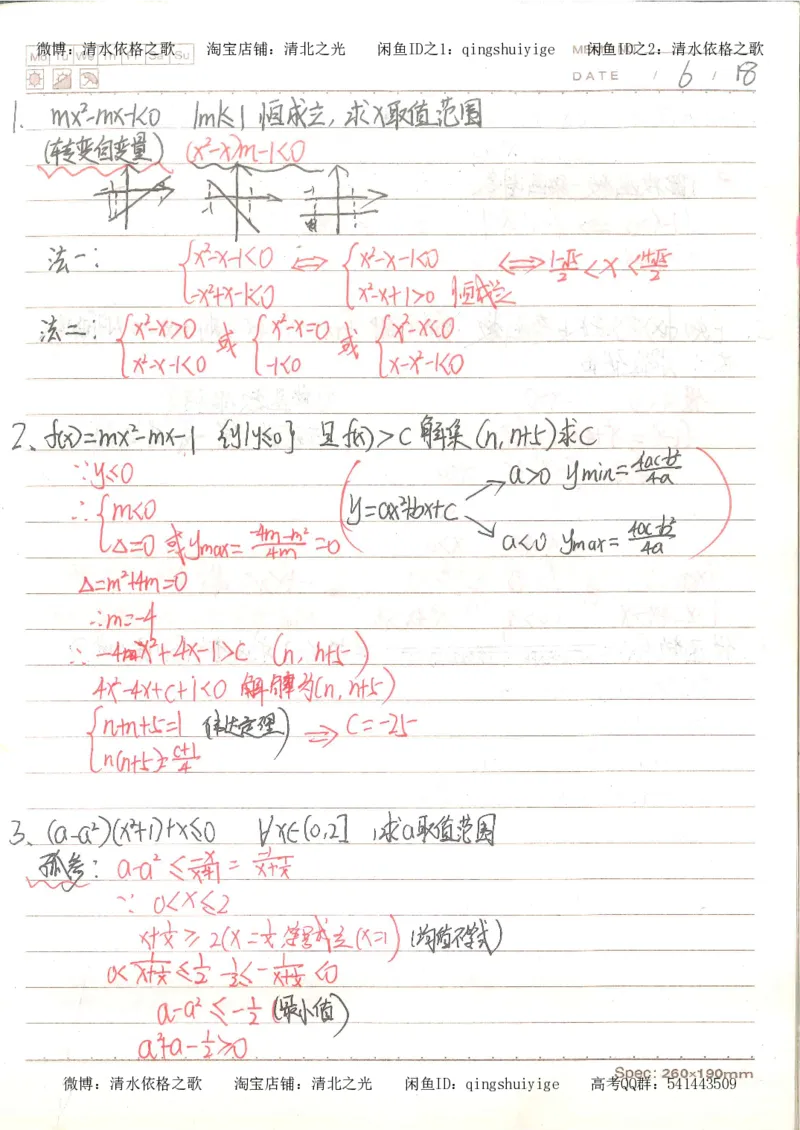 微博：清水依格之歌 淘宝店铺：清北之光 闲鱼ID之1：qingshuiyige 闲鱼ID之2：清水依格之歌
Mo Tu We Th Fr Sa Su
DATE / 6 / 18
1. mx²-mx-1<0 |m|≤1 恒成立，求x取值范围
(转变自变量) (x²-x)m-1<0
法一： {x²-x-1<0 ⇔ {x²-x-1<0 ⇔ (1-√5)/2 < x < (1+√5)/2
-x²+x-1<0 x²-x+1>0 恒成立
法二： {x²-x>0 或 {x²-x=0 或 {x²-x<0
x²-x-1<0 -1<0 x-x²-1<0
2、f(x)=mx²-mx-1 {y|y≤0} 且f(x)>C 解集(n, n+5)求C
∵y≤0 a>0 ymin=(4ac-b²)/4a
∴{m<0 y=ax²+bx+c
Δ=0 或 ymax=(-4m-m²)/4m=0 a<0 ymax=(4ac-b²)/4a
Δ=m²+4m=0
∴m=-4
∴ -4x²+4x-1>c (n, n+5)
4x²-4x+c+1<0 解集为(n, n+5)
{n+n+5=1 (韦达定理) ⇒ C=-25
n(n+5)=(c+1)/4
3、(a-a²)(x²+1)+x≤0 ∀x∈(0,2] ,求a取值范围
孤参： a-a² ≤ -x/(x²+1) = -1/(x+1/x)
∵ 0<x≤2
x+1/x ≥ 2(x=1/x 等号成立(x=1)) (均值不等式)
0<1/(x+1/x)≤1/2 -1/2≤-1/(x+1/x)<0
a-a² ≤ -1/2 (最小值)
a²+a-1/2≥0
Spec: 260×190mm
微博：清水依格之歌 淘宝店铺：清北之光 闲鱼ID：qingshuiyige 高考QQ群：541443509